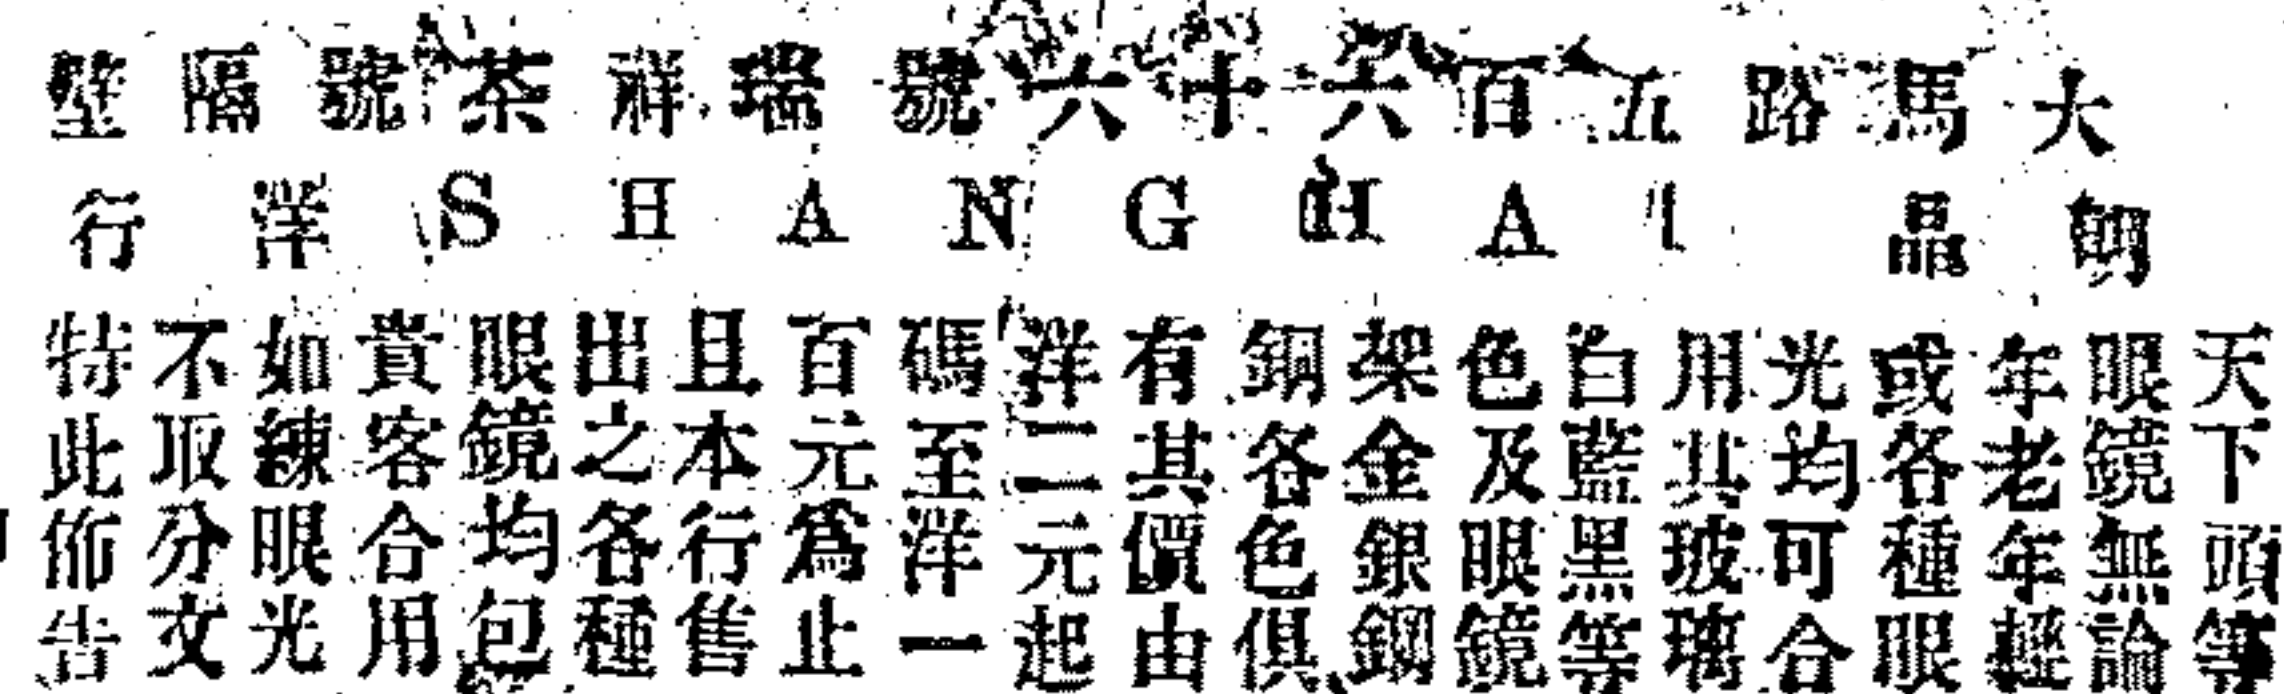 大馬路五百六十六號瑞祥茶號隔壁
明晶 SHANGHAI 洋行
天下頭等
眼鏡無論
年老年輕
或各種眼
光均可合
用其玻璃
白藍黑等
色及眼鏡
架金銀鋼
銅各色俱
有其價由
洋二元起
碼至洋一
百元爲止
且本行售
出之各種
眼鏡均包
貴客合用
如練眼光
不取分文
特此佈告